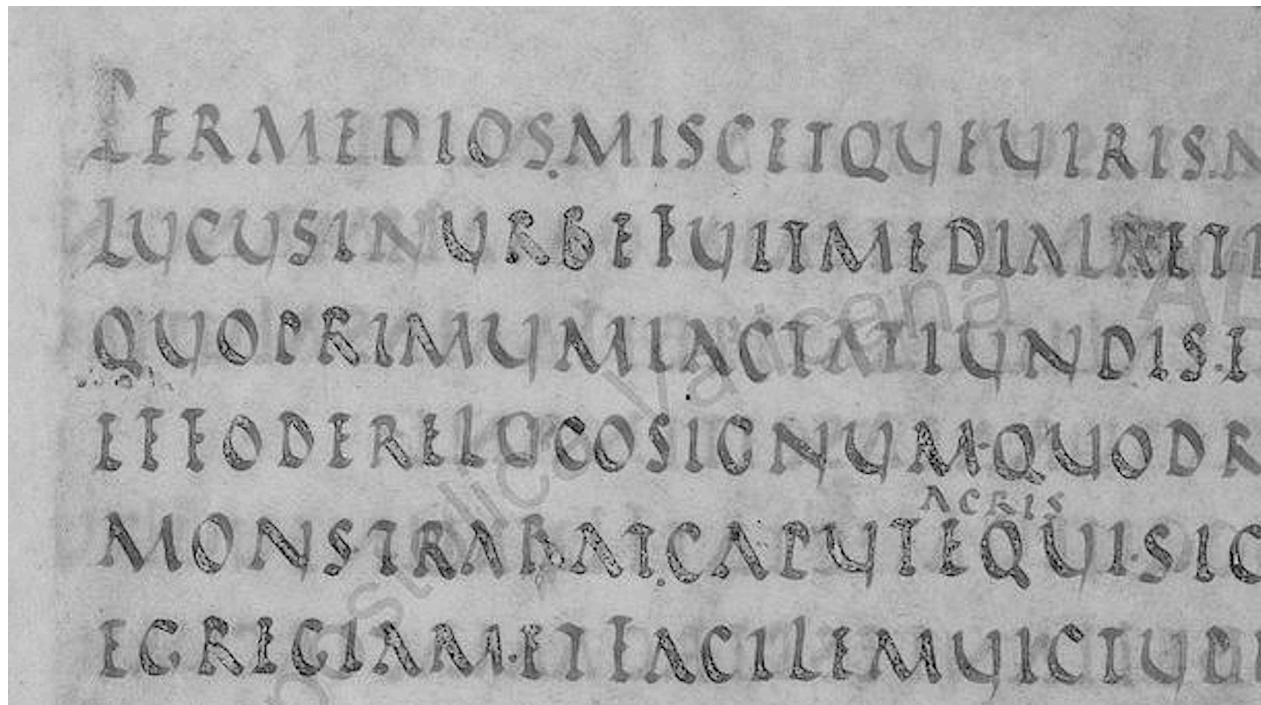 PERMEDIOS.MISCETQUEUIRIS.N
LUCUSINURBEFUITMEDIALAETI
QUOPRIMUMIACTATIUNDIS.E
EFFODERELOCOSIGNUM.QUODR
ACRIS
MONSTRABAT.CAPUTEQUI.SIC
EGREGIAM.ETFACILEMUICTUPE